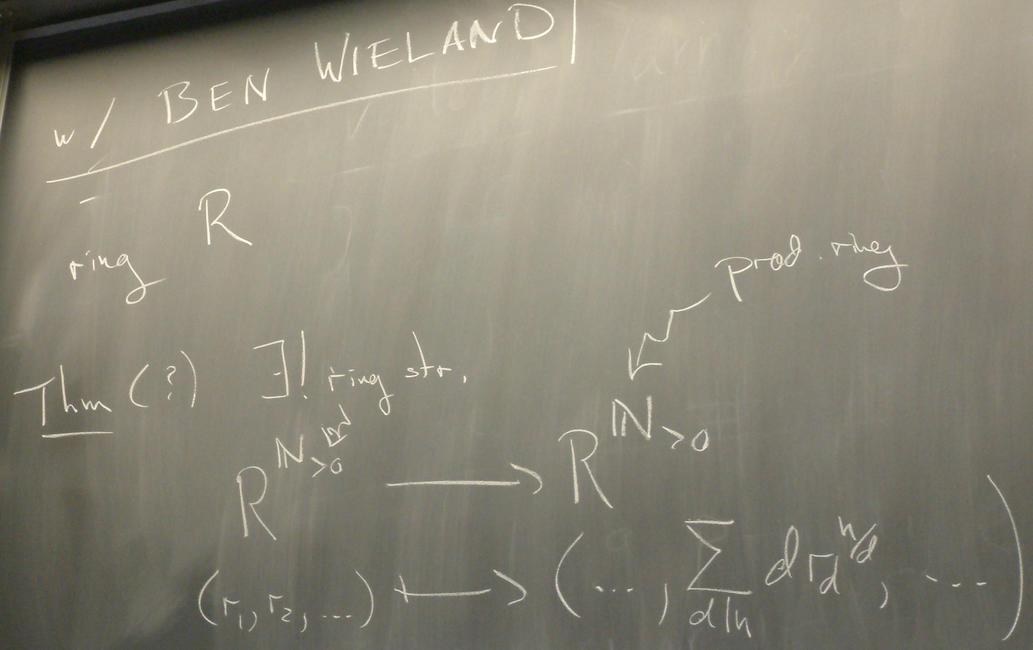 w/ BEN WIELAND
ring R
prod. ring
Thm (?) ∃! ring str.
R^{ℕ_{>0}} ⟶ R^{ℕ_{>0}}
(r₁, r₂, ...) ⟼ (..., ∑_{d|n} d r_d^{n/d}, ...)